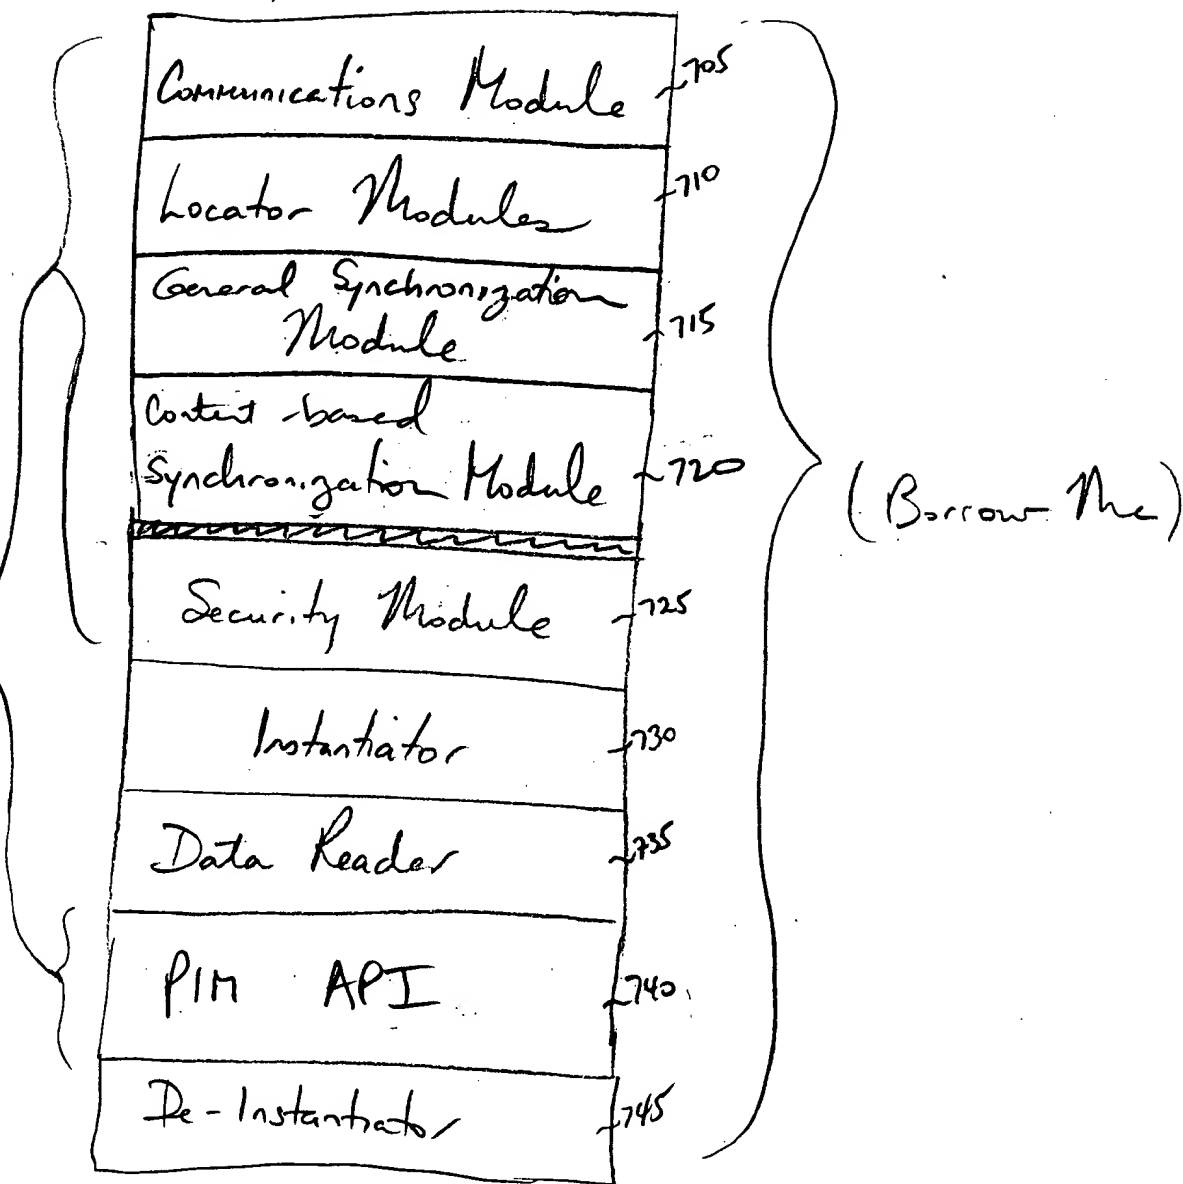 Communications Module 705
Locator Modules 710
General Synchronization
Module 715
Content-based
Synchronization Module 720
(Borrow Me)
Security Module 725
Instantiator 730
Data Reader 735
PIM API 740
De-Instantiator 745